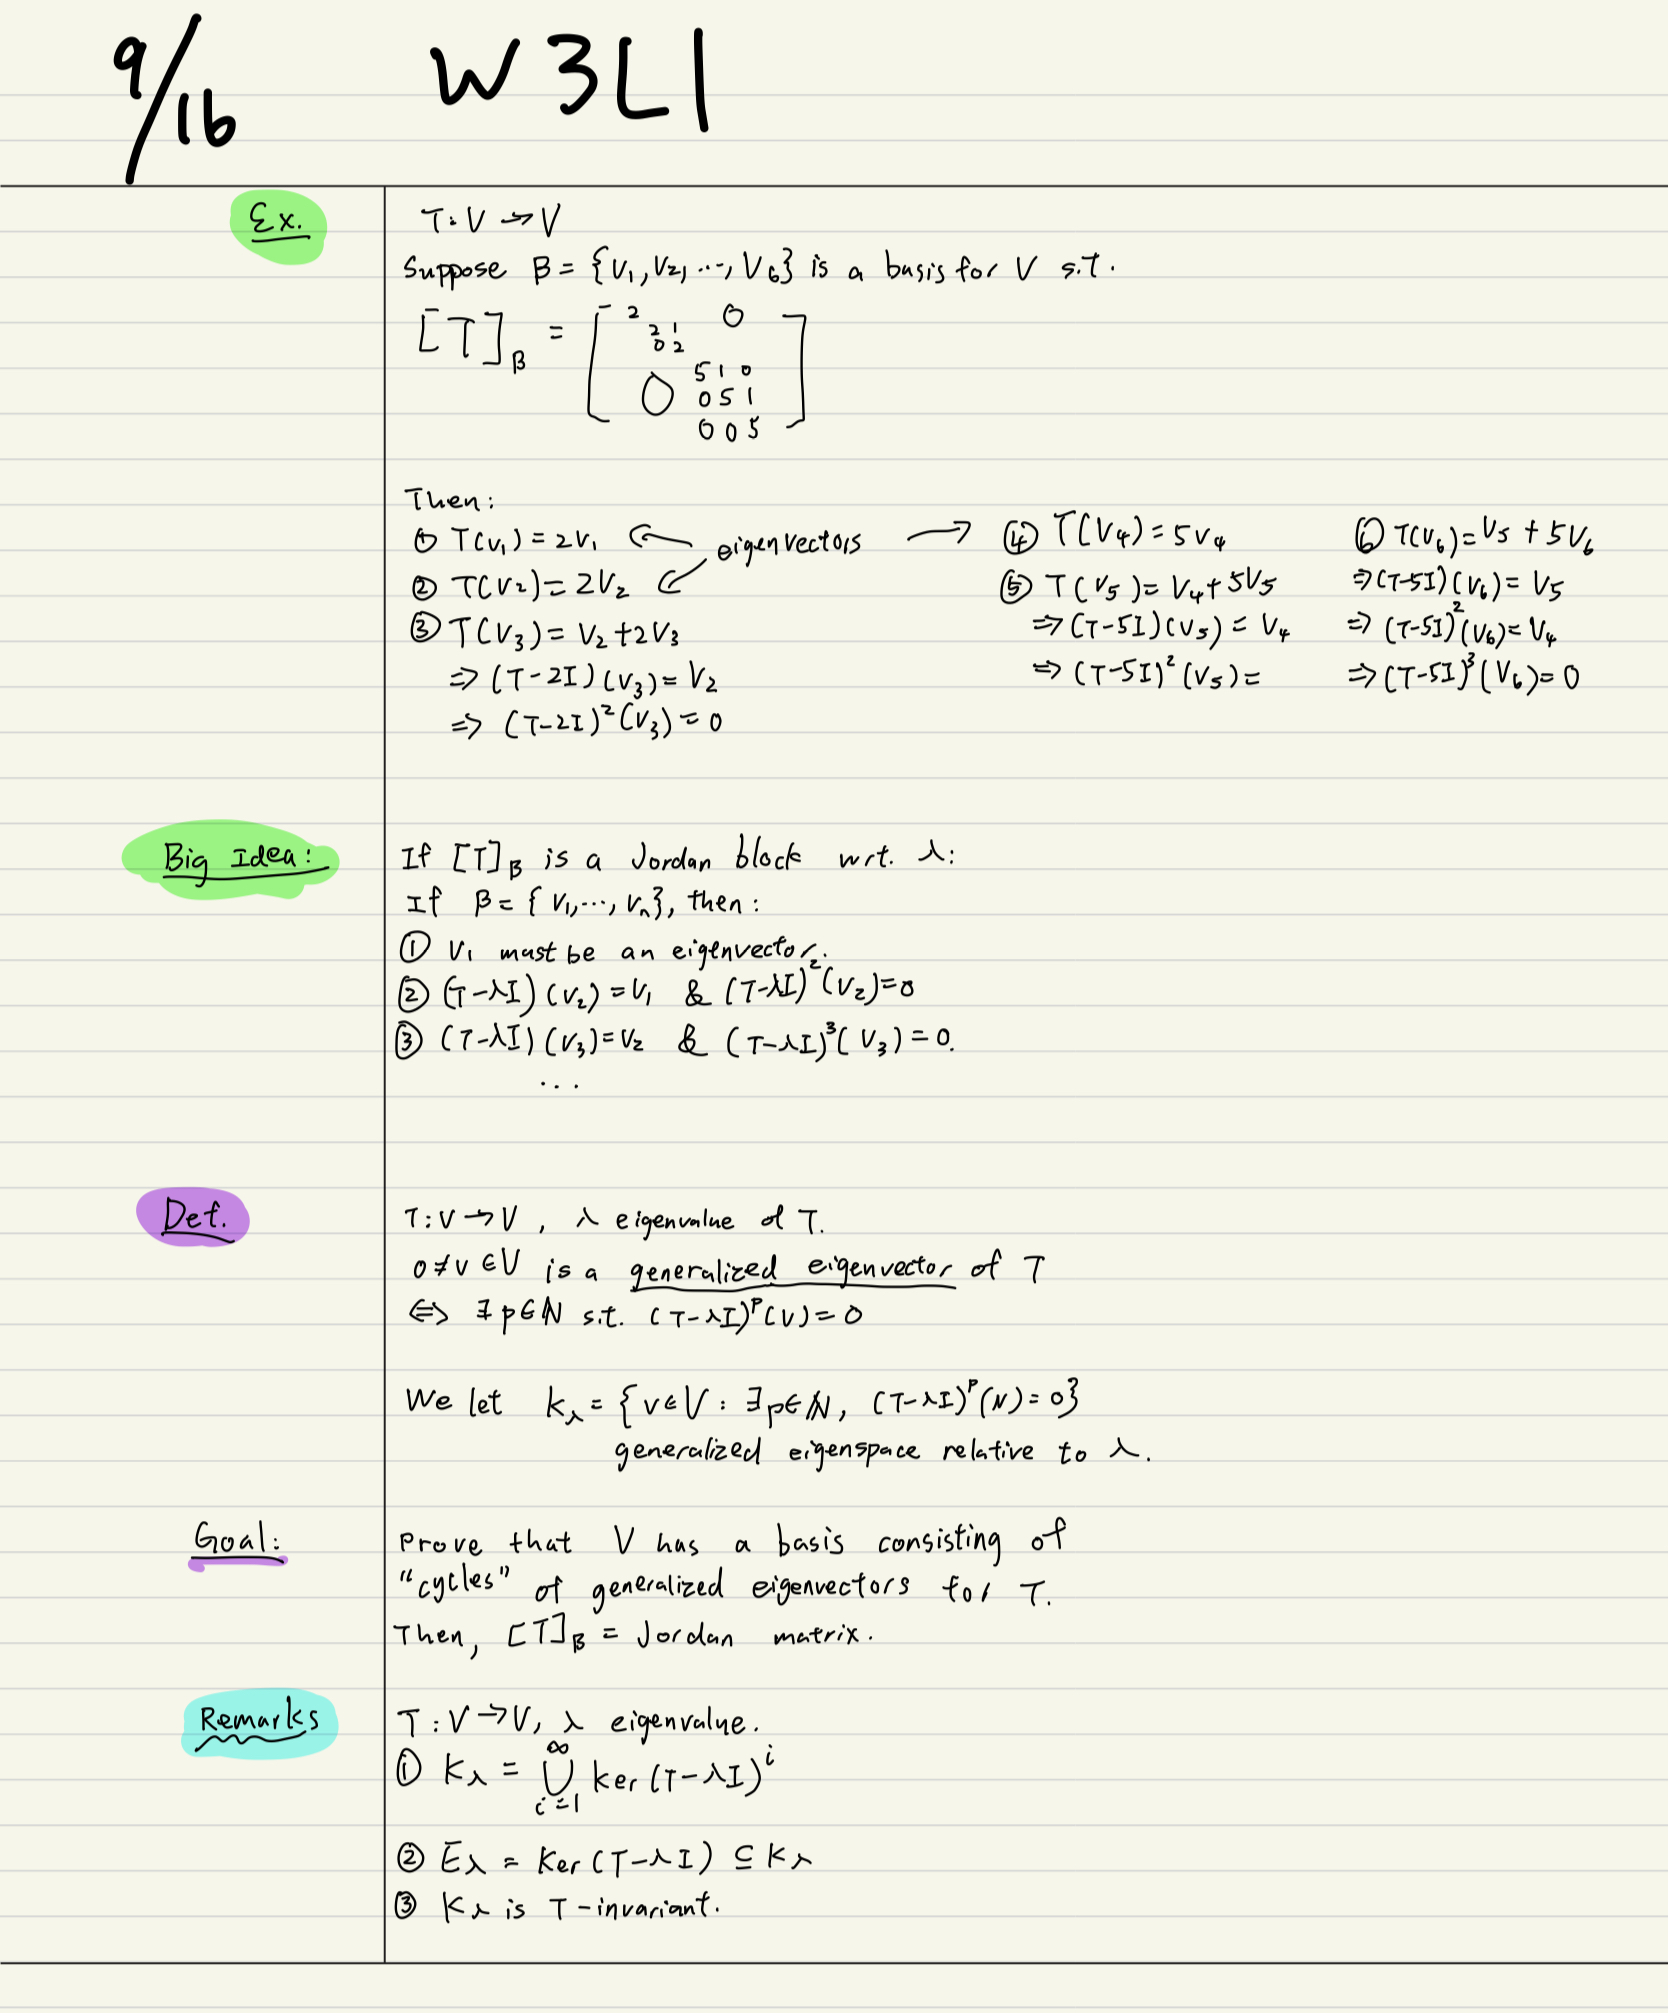 9/16 W3L1
Ex.
T: V → V
Suppose β = {v₁, v₂, ..., v₆} is a basis for V s.t.
[T]_β = [ 2 0
2 1
0 2
5 1 0
0 0 5 1
0 0 5 ]
Then:
① T(v₁) = 2v₁ ← eigenvectors →
② T(v₂) = 2v₂
③ T(v₃) = v₂ + 2v₃
⇒ (T - 2I)(v₃) = v₂
⇒ (T - 2I)²(v₃) = 0
④ T(v₄) = 5v₄
⑤ T(v₅) = v₄ + 5v₅
⇒ (T - 5I)(v₅) = v₄
⇒ (T - 5I)²(v₅) =
⑥ T(v₆) = v₅ + 5v₆
⇒ (T - 5I)(v₆) = v₅
⇒ (T - 5I)²(v₆) = v₄
⇒ (T - 5I)³(v₆) = 0
Big Idea:
If [T]_β is a Jordan block wrt. λ:
If β = {v₁, ..., vₙ}, then:
① v₁ must be an eigenvector.
② (T - λI)(v₂) = v₁ & (T - λI)²(v₂) = 0
③ (T - λI)(v₃) = v₂ & (T - λI)³(v₃) = 0.
...
Def.
T: V → V, λ eigenvalue of T.
0 ≠ v ∈ V is a generalized eigenvector of T
⇔ ∃ p ∈ ℕ s.t. (T - λI)ᵖ(v) = 0
We let K_λ = {v ∈ V : ∃ p ∈ ℕ, (T - λI)ᵖ(v) = 0}
generalized eigenspace relative to λ.
Goal:
Prove that V has a basis consisting of
"cycles" of generalized eigenvectors for T.
Then, [T]_β = Jordan matrix.
Remarks
T: V → V, λ eigenvalue.
① K_λ = ∞ ⋃ i=1 ker(T - λI)ⁱ
② E_λ = Ker(T - λI) ⊆ K_λ
③ K_λ is T-invariant.